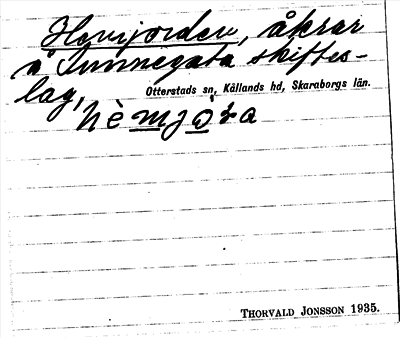 Hemjorden, åkrar
å Sunnegata skiftes-
lag,
Otterstads sn, Kållands hd, Skaraborgs län.
THORVALD JONSSON 1935.